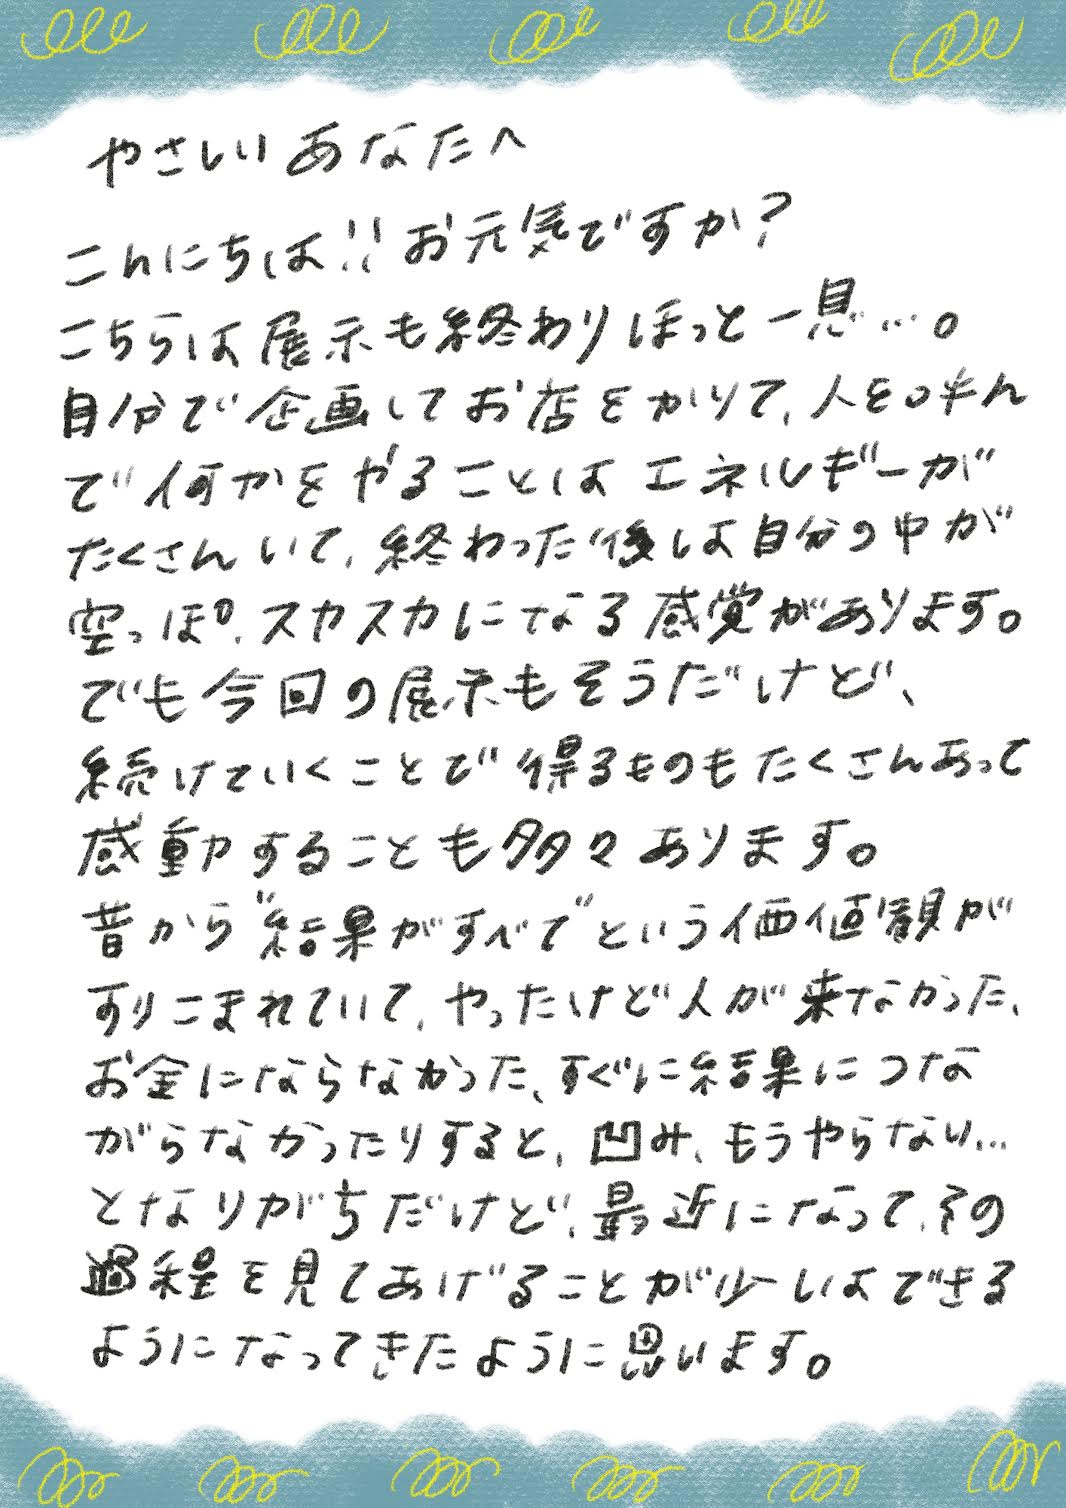 やさしいあなたへ
こんにちは!!お元気ですか?
こちらは展示も終わりほっと一息…。
自分で企画してお店をかりて、人を呼ん
で何かをやることはエネルギーが
たくさんいて、終わった後は自分の中が
空っぽ。スカスカになる感覚があります。
でも今回の展示もそうだけど、
続けていくことで得るものもたくさんあって
感動することも多々あります。
昔から"結果がすべて"という価値観が
すりこまれていて、やったけど人が来なかった、
お金にならなかった、すぐに結果につな
がらなかったりすると、凹み、もうやらない…
となりがちだけど、最近になって、その
過程を見てあげることが少しはできる
ようになってきたように思います。